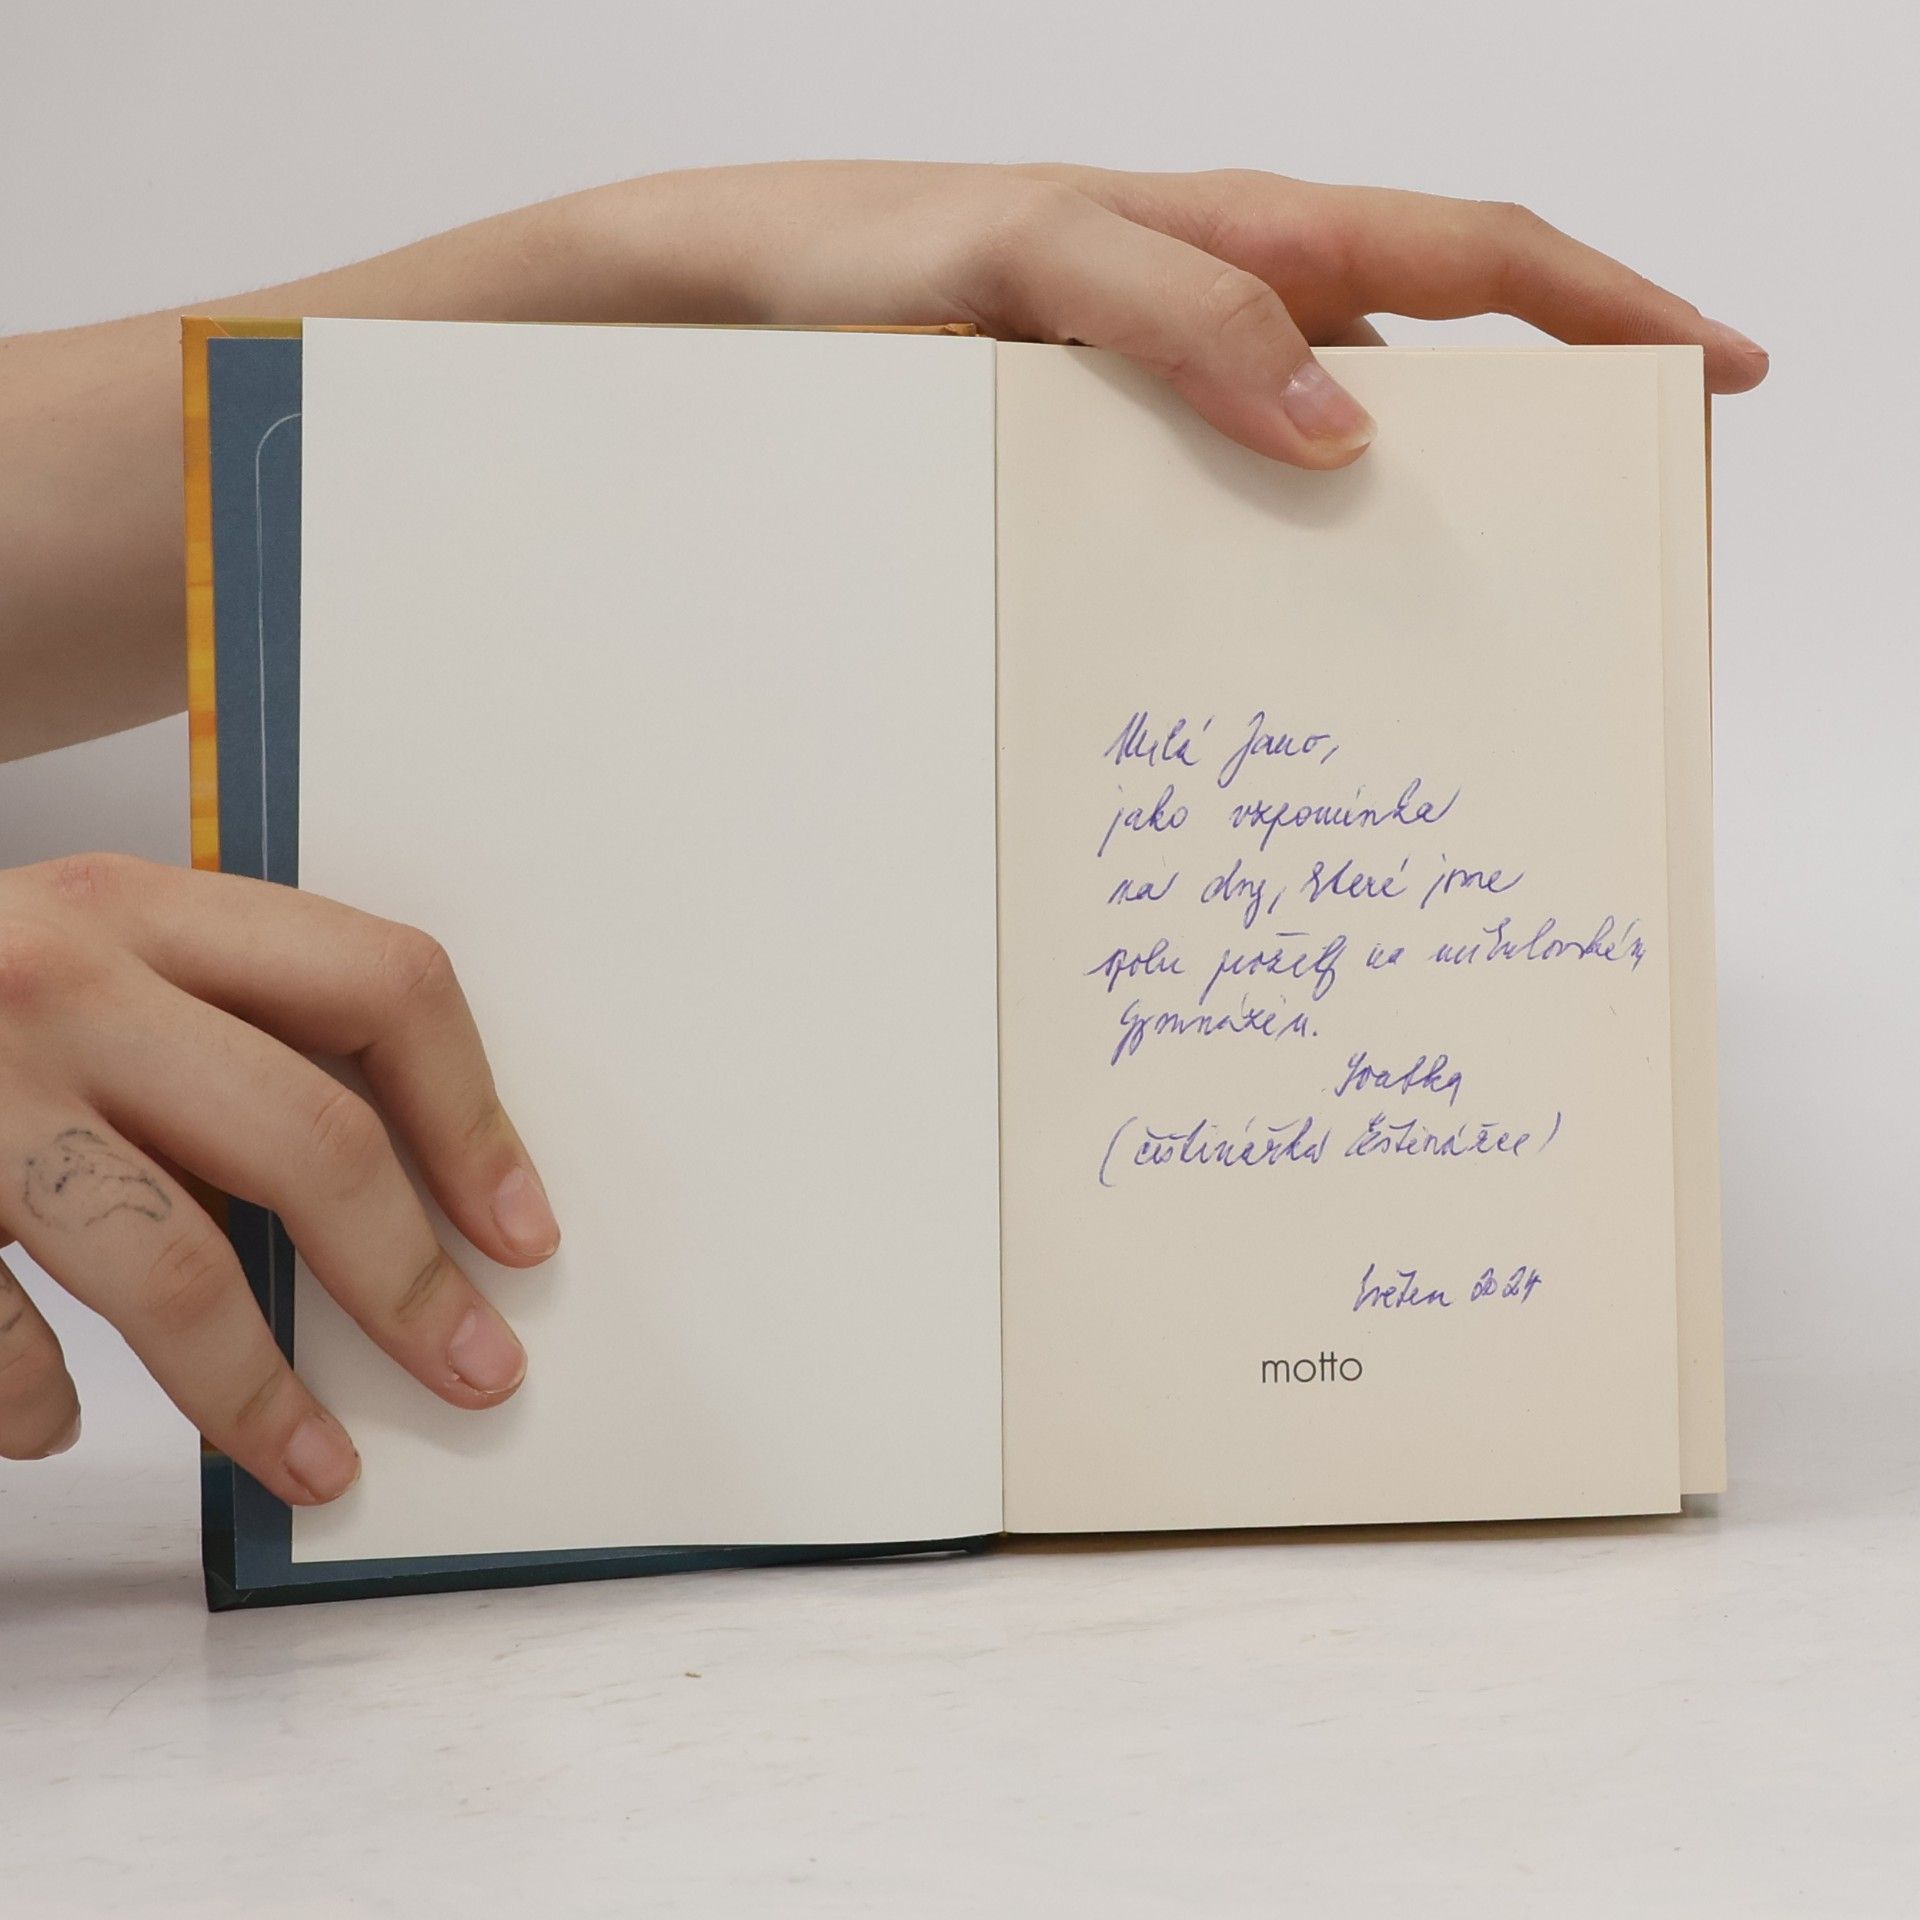 Milá Jano,
jako vzpomínka
na dny, které jsme
spolu prožily na mikulovském
gymnáziu.
Svatka
(češtinářka češtinářce)
květen 2024
motto